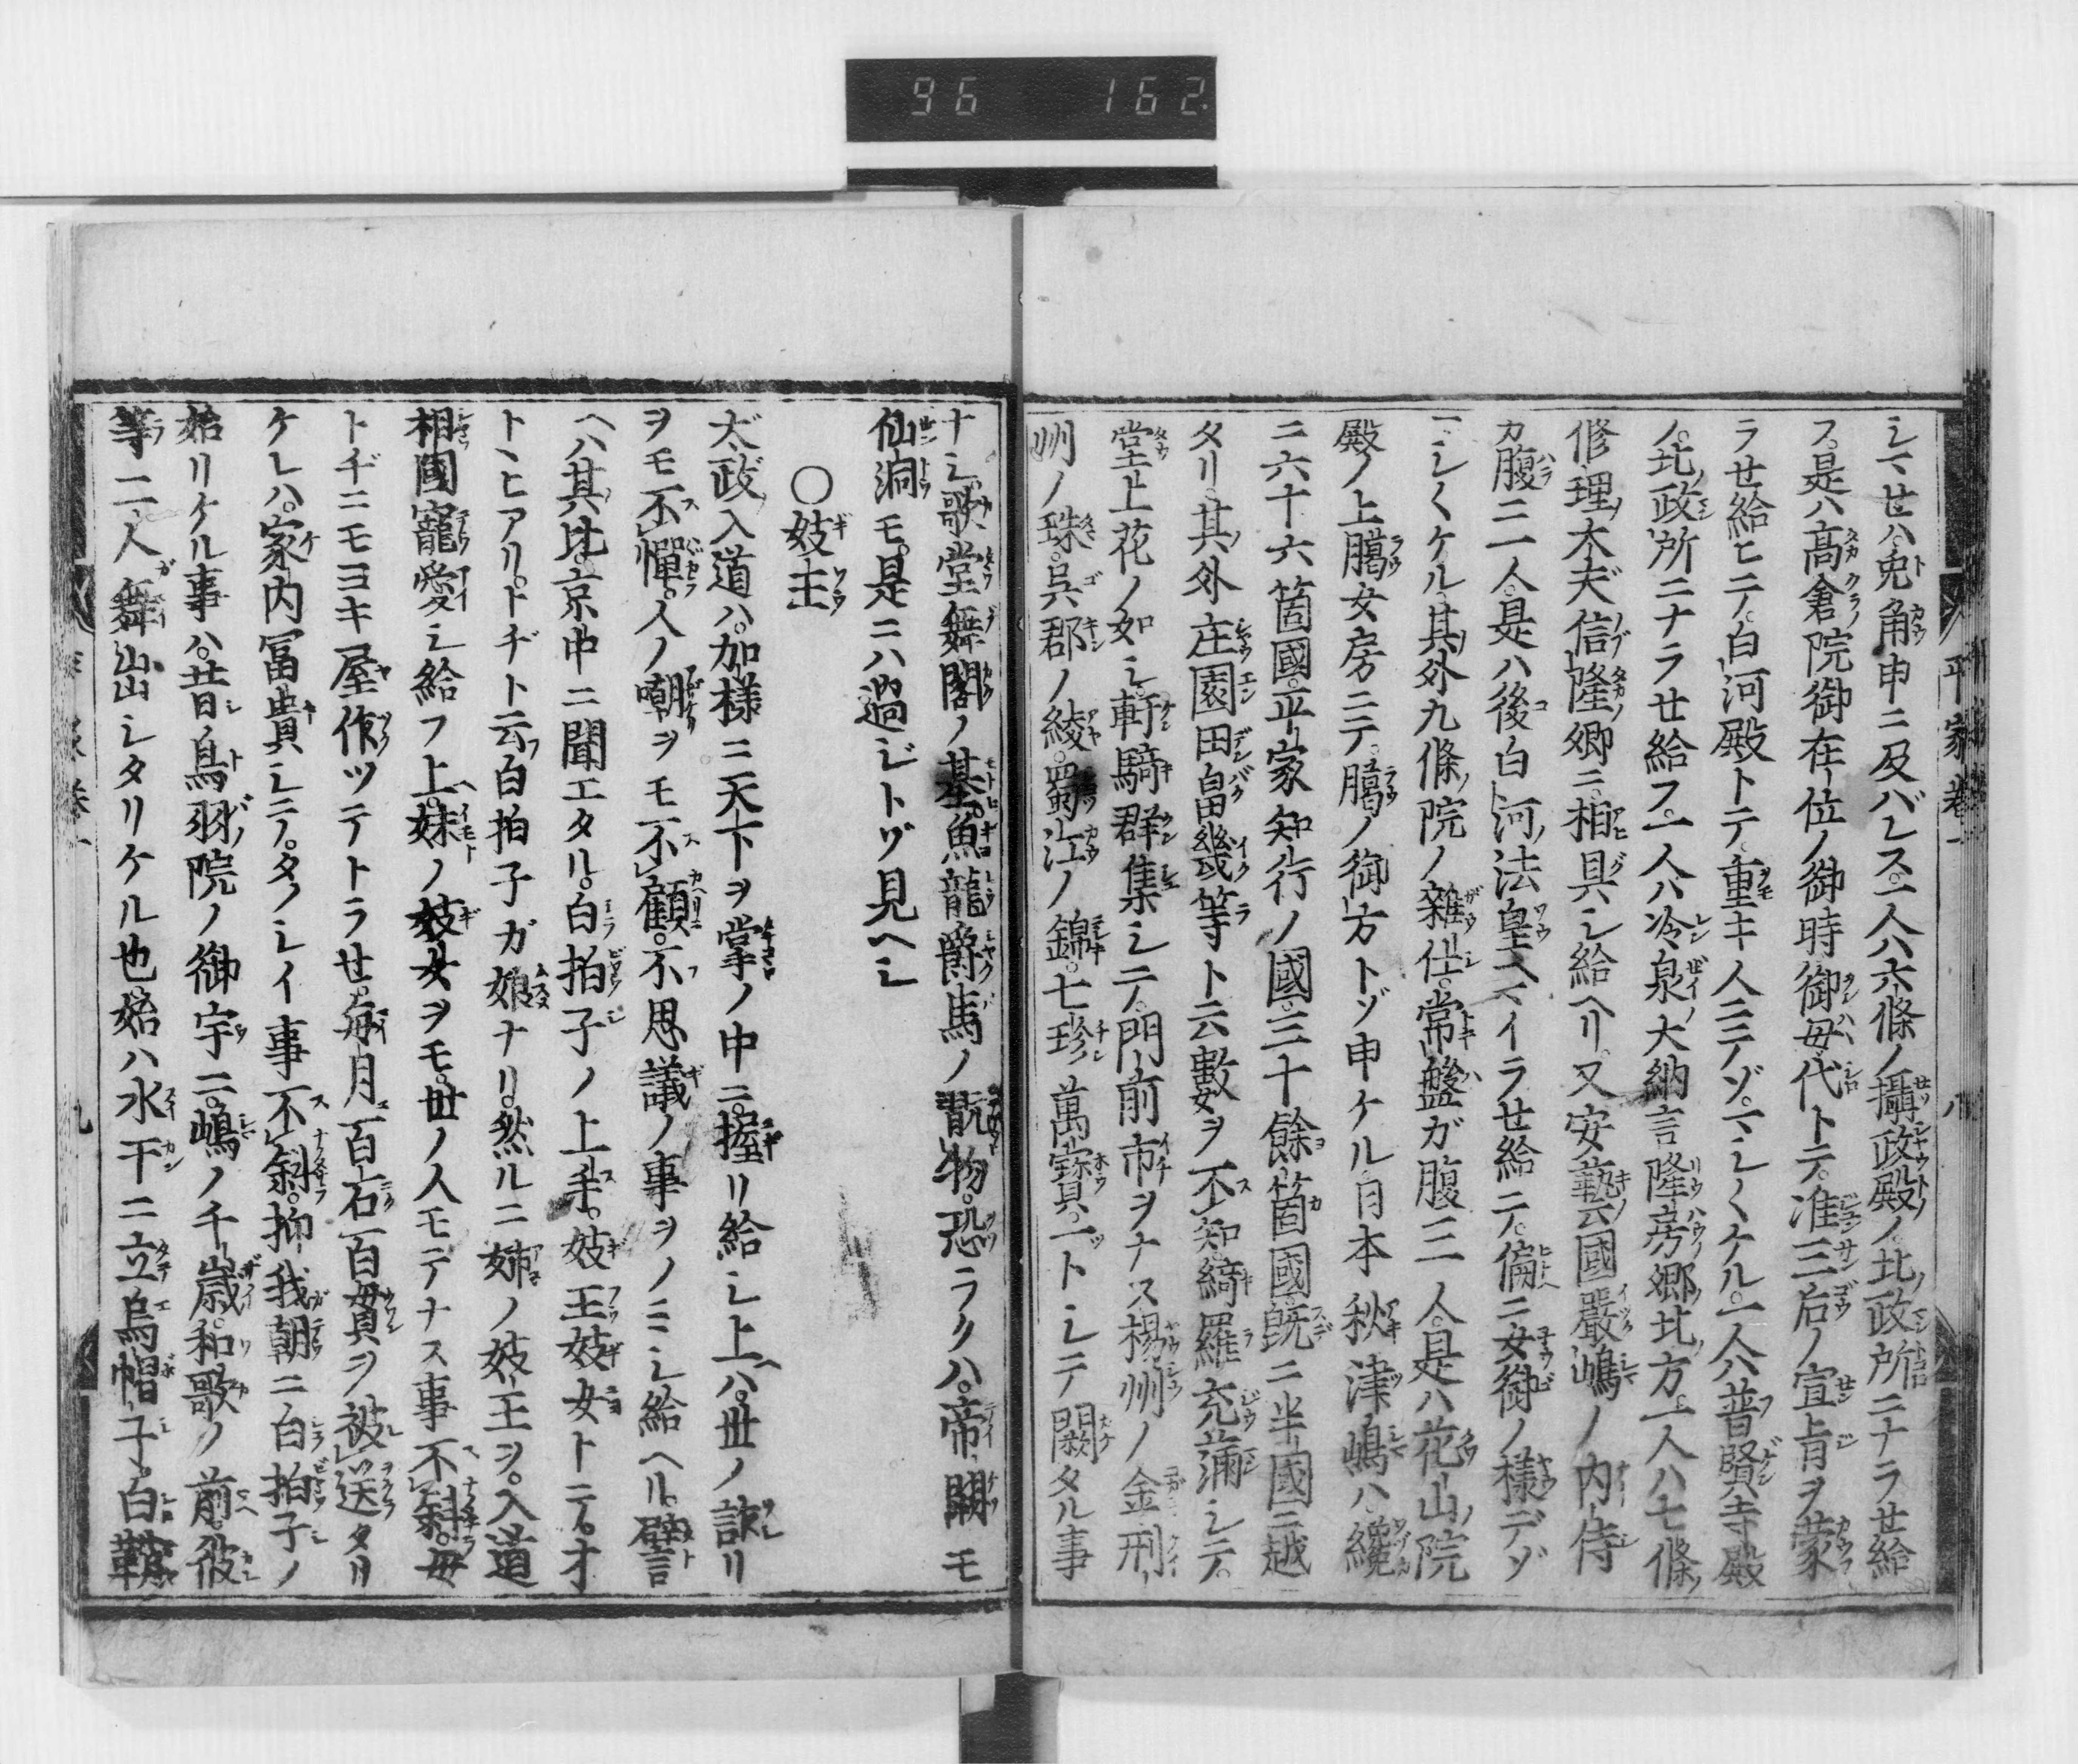 96 162
平家巻一 八
シマセハ兎角申ニ及バレス一人ハ六條ノ攝政殿ノ北政所ニナラせ給
フ是ハ髙倉院御在位ノ御時御母代トテ准三后ノ宣旨ヲ蒙
ラせ給ヒテ白河殿トテ重キ人ニテゾマシ〱ケル一人ハ普賢寺殿
ノ北政所ニナラせ給フ一人ハ冷泉大納言隆房郷北方一人ハ七條
修理大夫信隆郷ニ相具シ給ヘリ又安藝國嚴嶋ノ内侍
カ腹ニ一人是ハ後白河法皇ヘマイラせ給テ偏ニ女御ノ様デゾ
マシ〱ケル其外九條院ノ雜仕常盤ガ腹ニ一人是ハ花山院
殿ノ上﨟女房ニテ﨟ノ御方トゾ申ケル日本秋津嶋ハ纔
ニ六十六箇國平家知行ノ國三十餘箇國既ニ半國ニ越
タリ其外庄園田畠幾等ト云數ヲ不知綺羅充滿シテ
堂上花ノ如シ軒騎群集シテ門前市ヲナス楊州ノ金荊
州ノ珠呉郡ノ綾蜀江ノ錦七珍萬寳一トシテ闕タル事
ナシ歌堂舞閣ノ基魚龍爵馬ノ翫物恐ラクハ帝闕モ
仙洞モ是ニハ過ジトゾ見ヘシ
○妓王
大政入道ハ加様ニ天下ヲ掌ノ中ニ握リ給シ上ハ世ノ誹リ
ヲモ不憚人ノ嘲ヲモ不顧不思議ノ事ヲノミシ給ヘリ譬
ヘハ其比京中ニ聞エタル白拍子ノ上手妓王妓女トテオ
トヽヒアリトヂト云白拍子ガ娘ナリ然ルニ姉ノ妓王ヲ入道
相國寵愛シ給フ上妹ノ妓女ヲモ世ノ人モテナス事不斜母
トヂニモヨキ屋作ツテトラせ毎月百石百貫ヲ被送タリ
ケレハ家内冨貴シテタノシイ事不斜抑我朝ニ白拍子ノ
始リケル事ハ昔鳥羽院ノ御宇ニ嶋ノ千歳和歌ノ前彼
等二人舞出シタリケル也始ハ水干ニ立烏帽子白鞘
九